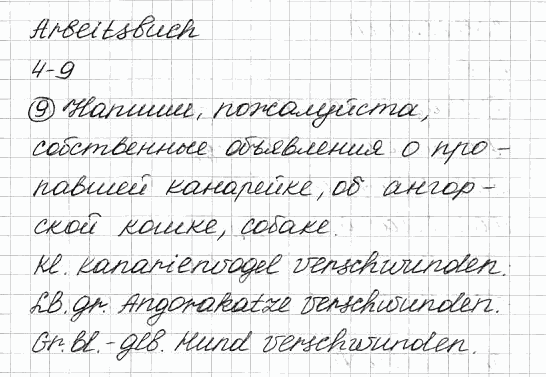 Arbeitsbuch
4-9
⑨ Напиши, пожалуйста,
собственные объявления о про-
павшей канарейке, об ангор-
ской кошке, собаке.
Kl. Kanarienvogel verschwunden.
LB. gr. Angorakatze verschwunden.
Gr. bl.-glb. Hund verschwunden.